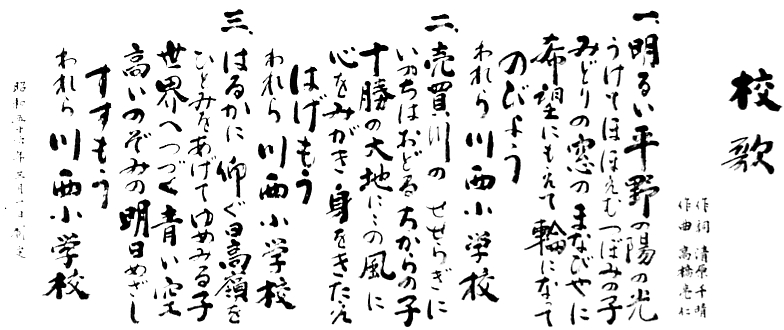 校歌
作詞 清原千晴
作曲 高橋亮仁
一、明るい平野の陽の光
うけてほほえむつぼみの子
みどりの窓のまなびやに
希望にもえて輪になって
のびよう
われら川西小学校
二、売買川のせせらぎに
いのちはおどるちからの子
十勝の大地にこの風に
心をみがき身をきたえ
はげもう
われら川西小学校
三、はるかに仰ぐ日高嶺を
ひとみをあげてゆめみる子
世界へつづく青い空
高いのぞみの明日めざし
すすもう
われら川西小学校